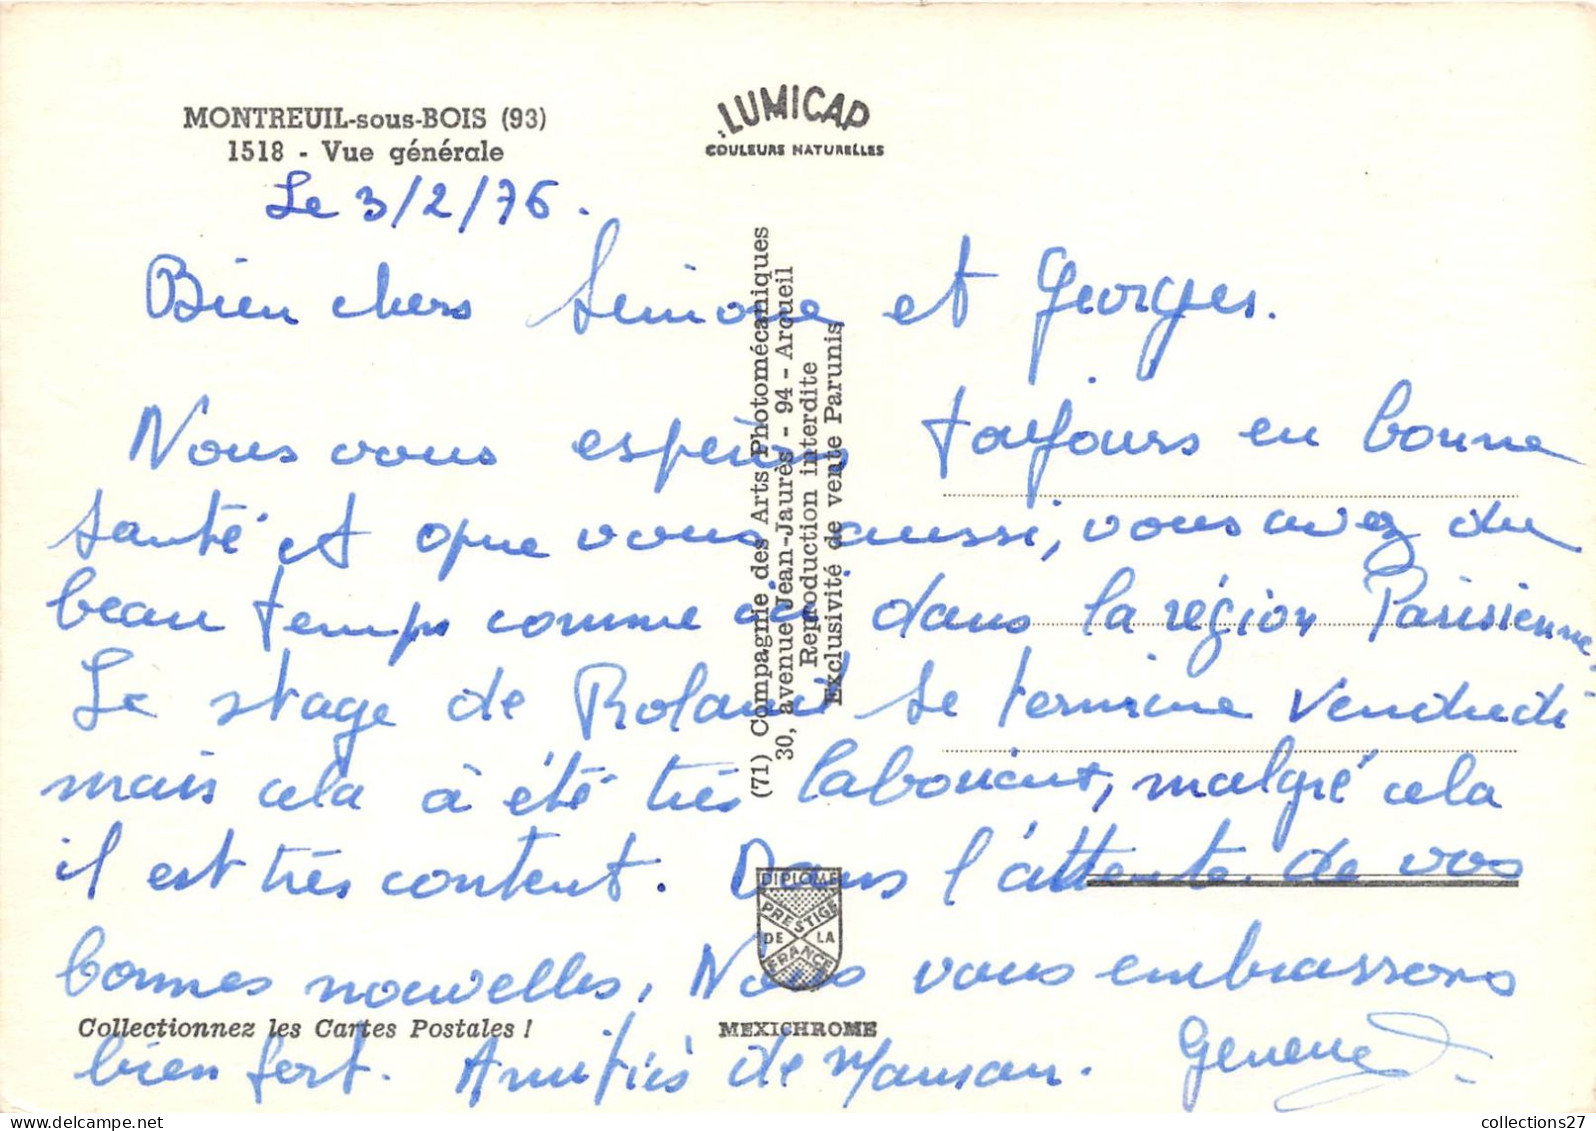 MONTREUIL-sous-BOIS (93)
1518 - Vue générale
LUMICAP
COULEURS NATURELLES
Le 3/2/76.
Bien chers Simone et Georges.
Nous vous espérons toujours en bonne
santé et que vous aussi, vous avez du
beau temps comme ici dans la région Parisienne.
Le stage de Roland se termine Vendredi
mais cela à été très laborieux, malgré cela
il est très content. Dans l'attente de vos
bonnes nouvelles, Nous vous embrassons
bien fort. Amitiés de Maman.
(71) Compagnie des Arts Photomécaniques
30, avenue Jean-Jaurès - 94 - Arcueil
Reproduction interdite
Exclusivité de vente Parunis
DIPLOME
PRESTIGE
DE LA
FRANCE
Collectionnez les Cartes Postales !
MEXICHROME
collections27